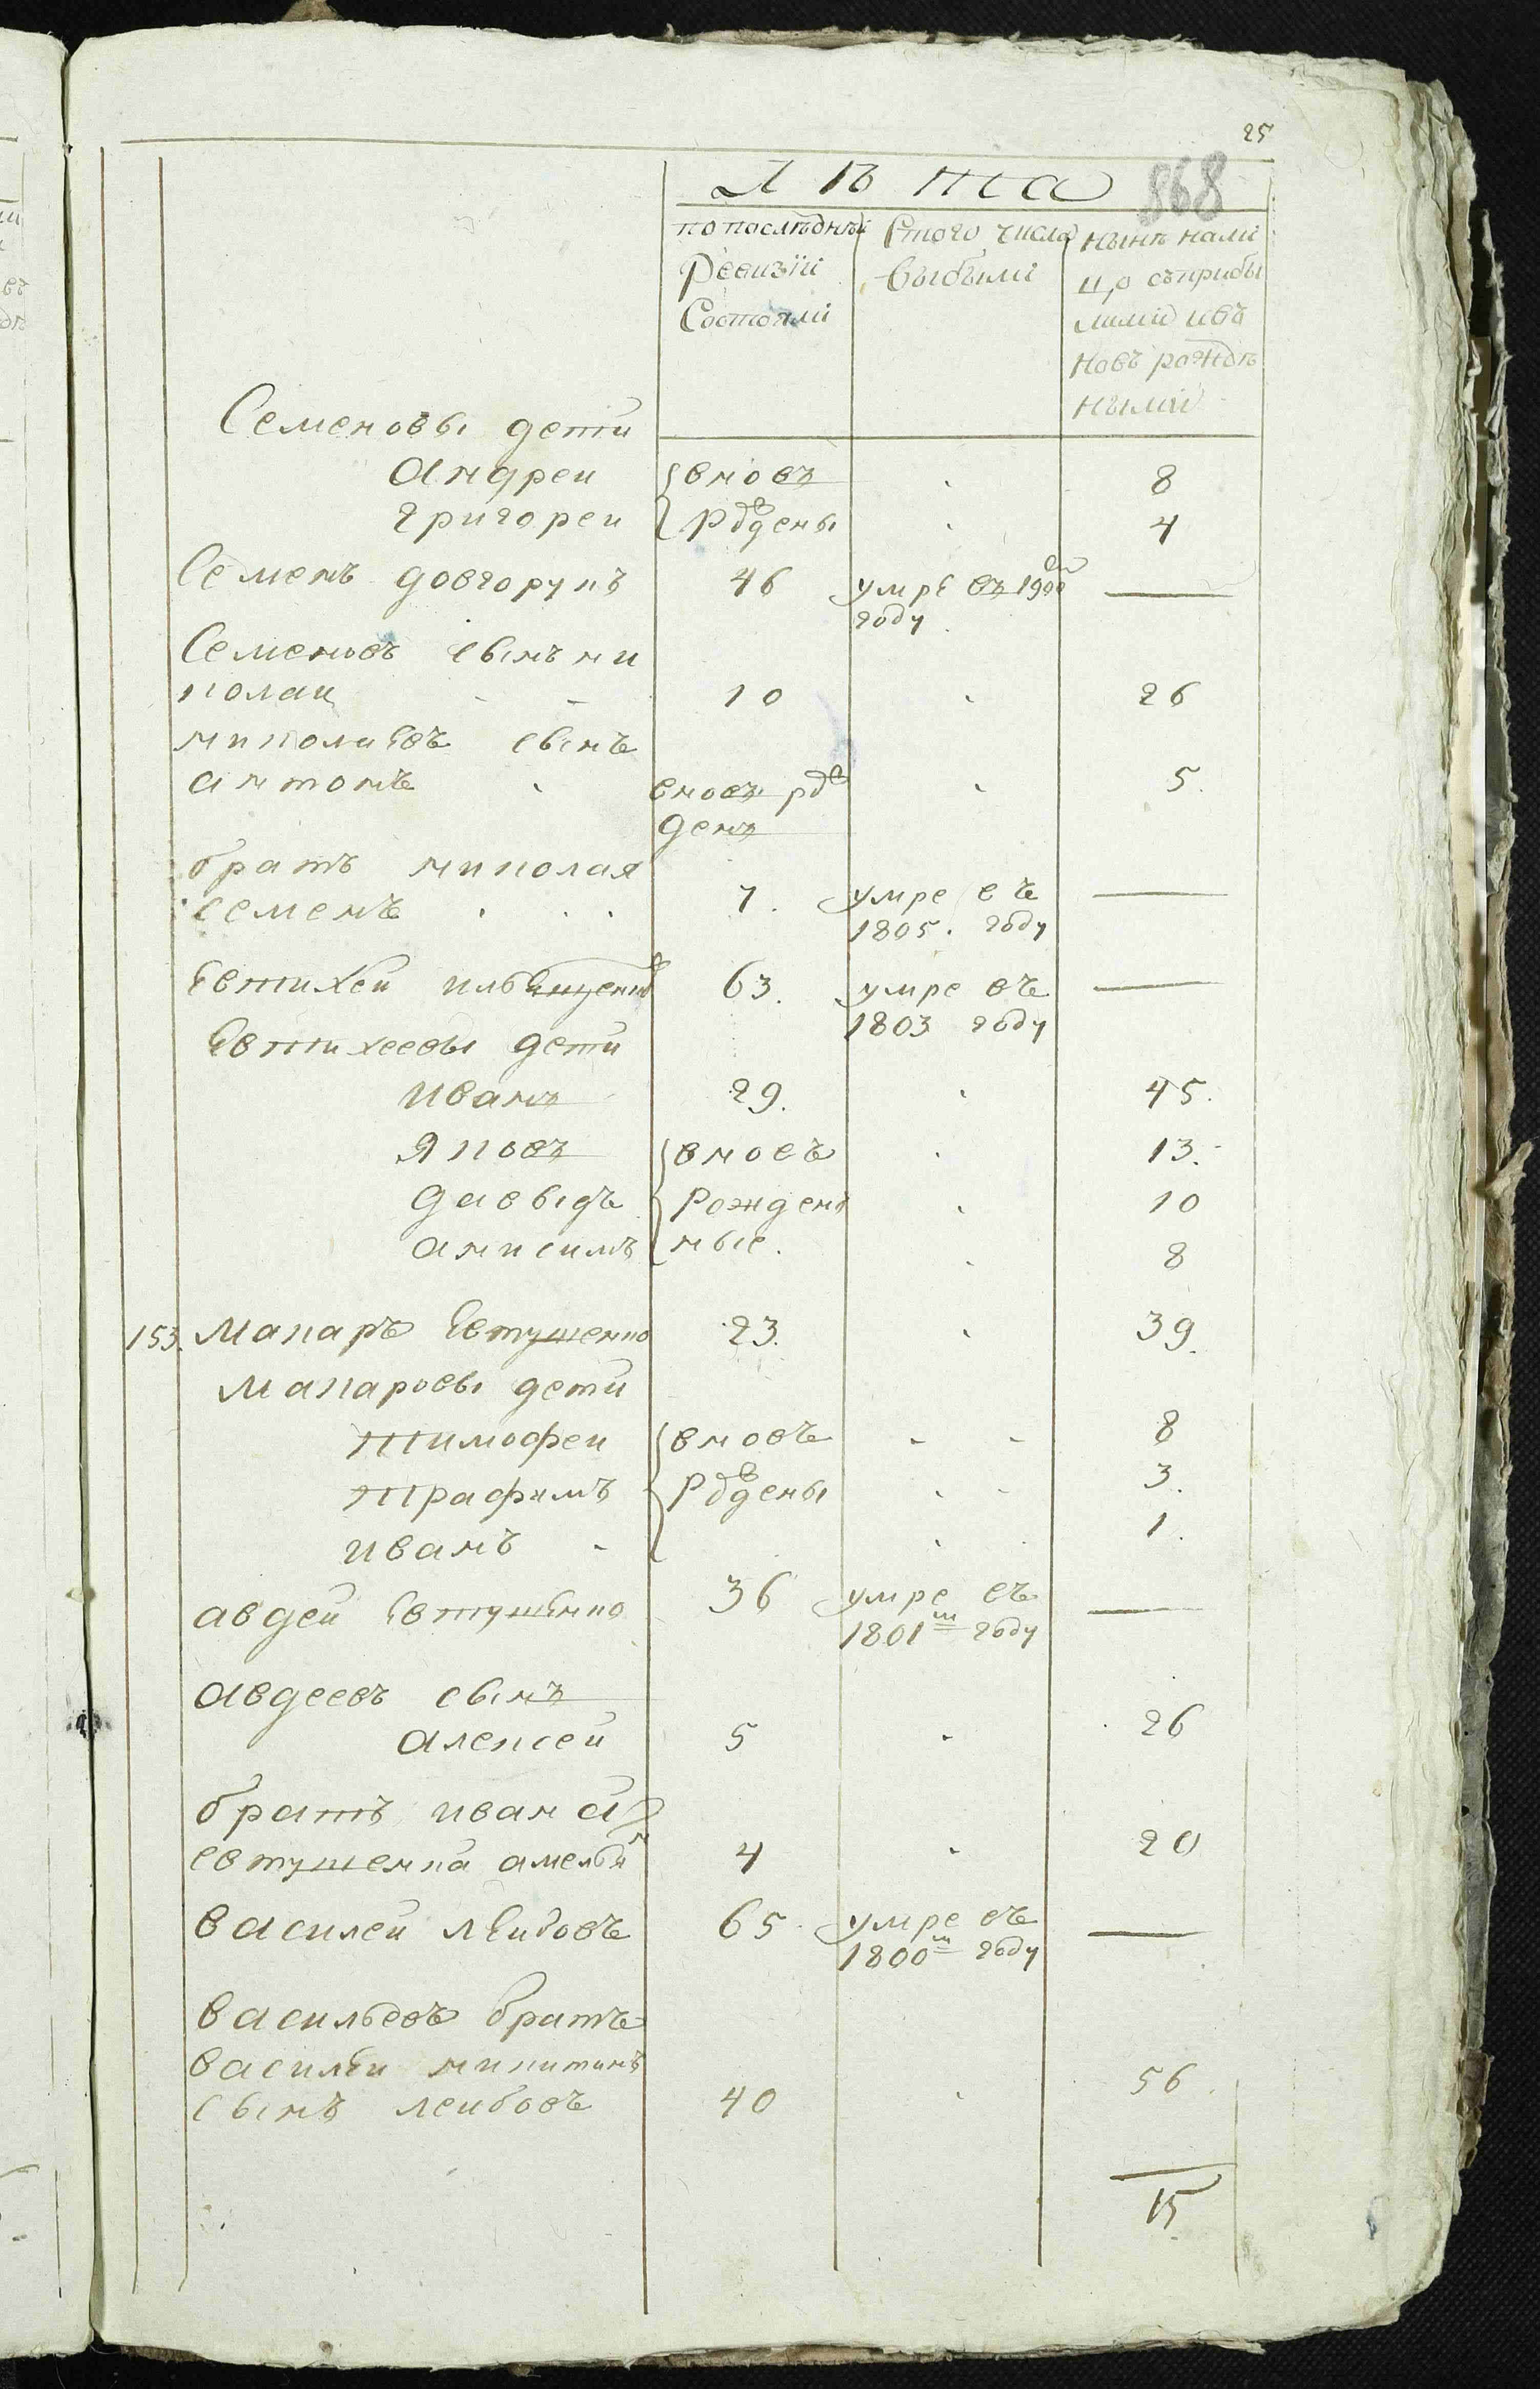 25
868
Лѣта
по последнѣй | С того числа | нынѣ нали
Ревизїи | выбыли | цо съ прибы
Состояли | лими и въ
новь рожде
ными
Семеновы дети
Андреи | вновъ | 8
Григореи | Рждены | 4
Семенъ Довгорукъ | 46 | умре въ 1800м | —
году
Семеновъ сынъ ни
колаи | 10 | 26
николаевъ сынъ
антонъ | вновъ рж | 5.
денъ
братъ николая
семенъ . . . | 7. | умре въ | —
1805. году
Евтихеи | 63. | умре въ | —
1803 году
Евтихеевы дети
Иванъ | 29. | 45.
Яковъ | вновъ | 13.
Давыдъ | Рожден | 10
анисимъ | ные. | 8
153. Макаръ Евтушенко | 23. | 39.
Макаровы дети
Тимофеи | вновъ | 8
Трафимъ | Рждены | 3.
иванъ | 1.
авдеи Евтушенко | 36 | умре въ | —
1801м году
авдеевъ сынъ
алексеи | 5 | 26
братъ ивана
евтушенка амельян | 4 | 20
Василеи Леибовъ | 65. | умре въ | —
1800м году
Васильевъ братъ
василеи никитинъ
сынъ леибовъ | 40 | 56.
15